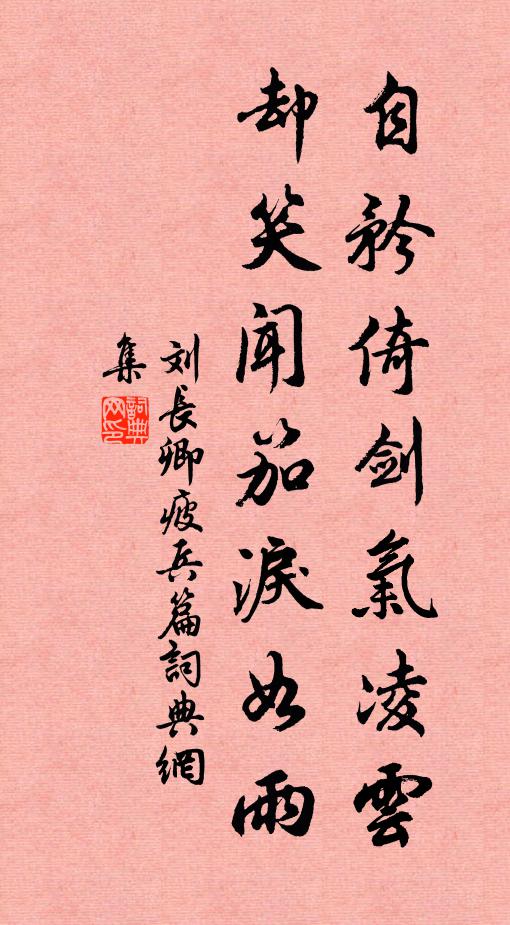 自矜倚劍氣凌雲
却笑聞笳淚如雨
刘長卿疲兵篇詞典網
集
詞典
網印